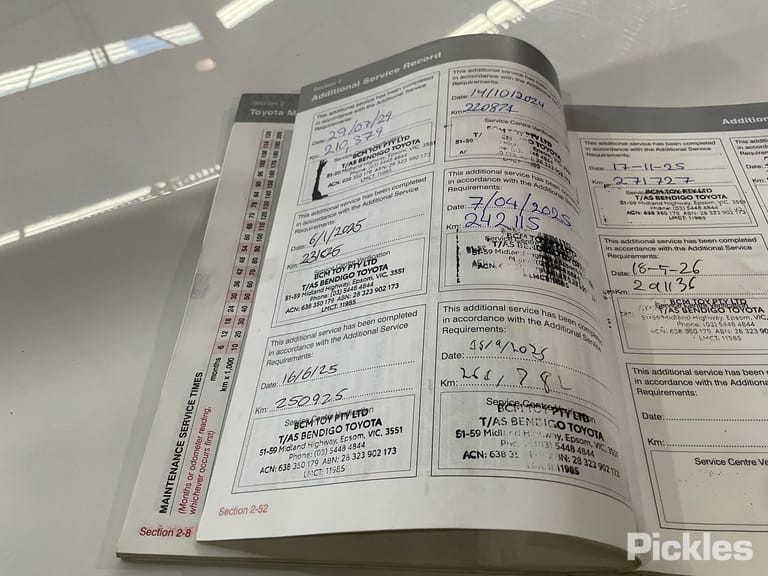 Section 2
Toyota M
months 6 12 18 24 30 36 42 48 54 60 66 72 78 84 90 96 102 108 114 120
km x 1,000 10 20 30 40 50 60 70 80 90 100 110 120 130 140 150 160 170 180 190 200
MAINTENANCE SERVICE TIMES
(Months or odometer reading,
whichever occurs first)
Section 2-8
Section 2
Additional Service Record
This additional service has been completed
in accordance with the Additional Service
Requirements:
Date: 29/07/24
Km: 210,379
BCM TOY PTY LTD
T/AS BENDIGO TOYOTA
ACN: 638 350 179 ABN: 28 323 902 173
LMCT: 11985
This additional service has been completed
in accordance with the Additional Service
Requirements:
Date: 14/10/2024
Km: 220871
Service Centre Verification
BCM TOY PTY LTD
51-59
This additional service has been completed
in accordance with the Additional Service
Requirements
Date: 6/1/2025
Km:
Service Centre Verification
BCM TOY PTY LTD
T/AS BENDIGO TOYOTA
51-59 Midland Highway, Epsom, VIC, 3551
Phone: (03) 5448 4844
ACN: 638 350 179 ABN: 28 323 902 173
LMCT: 11985
This additional service has been completed
in accordance with the Additional Service
Requirements:
Date: 7/04/2025
Km: 242115
BCM
T/AS BENDIGO TOYOTA
51-59 Midland Highway
ACN:
This additional service has been completed
in accordance with the Additional Service
Requirements:
Date: 16/6/25
Km: 250925
Service Centre Verification
BCM TOY PTY LTD
T/AS BENDIGO TOYOTA
51-59 Midland Highway, Epsom, VIC, 3551
Phone: (03) 5448 4844
ACN: 638 350 179 ABN: 28 323 902 173
LMCT: 11985
This additional service has been completed
in accordance with the Additional Service
Requirements:
Date:
Km:
Service Centre
BCM TOY PTY LTD
T/AS BENDIGO TOYOTA
51-59 Midland Highway, Epsom, VIC, 3551
5448 4844
ACN: 638 ABN: 28 323 902 173
11985
Section 2-52
Addition
This additional service has been completed
in accordance with the Additional Service
Requirements:
Date: 17-11-25
Km: 271727
BCM TOY PTY LTD
T/AS BENDIGO TOYOTA
51-59 Midland Highway, Epsom, VIC, 3551
Phone: (03) 5448 4844
ACN: 638 350 179 ABN: 28 323 902 173
LMCT: 11985
This additional service has been completed
in accordance with the Additional Service
Requirements:
Date: 18-5-26
Km: 291136
BCM TOY PTY LTD
T/AS BENDIGO TOYOTA
51-59 Midland Highway, Epsom, VIC, 3551
Phone: (03) 5448 4844
ACN: 638 350 179 ABN: 28 323 902 173
LMCT: 11985
This additional service has been
in accordance with the Additional
Requirements:
Date:
Km:
Service Centre Ve
Pickles